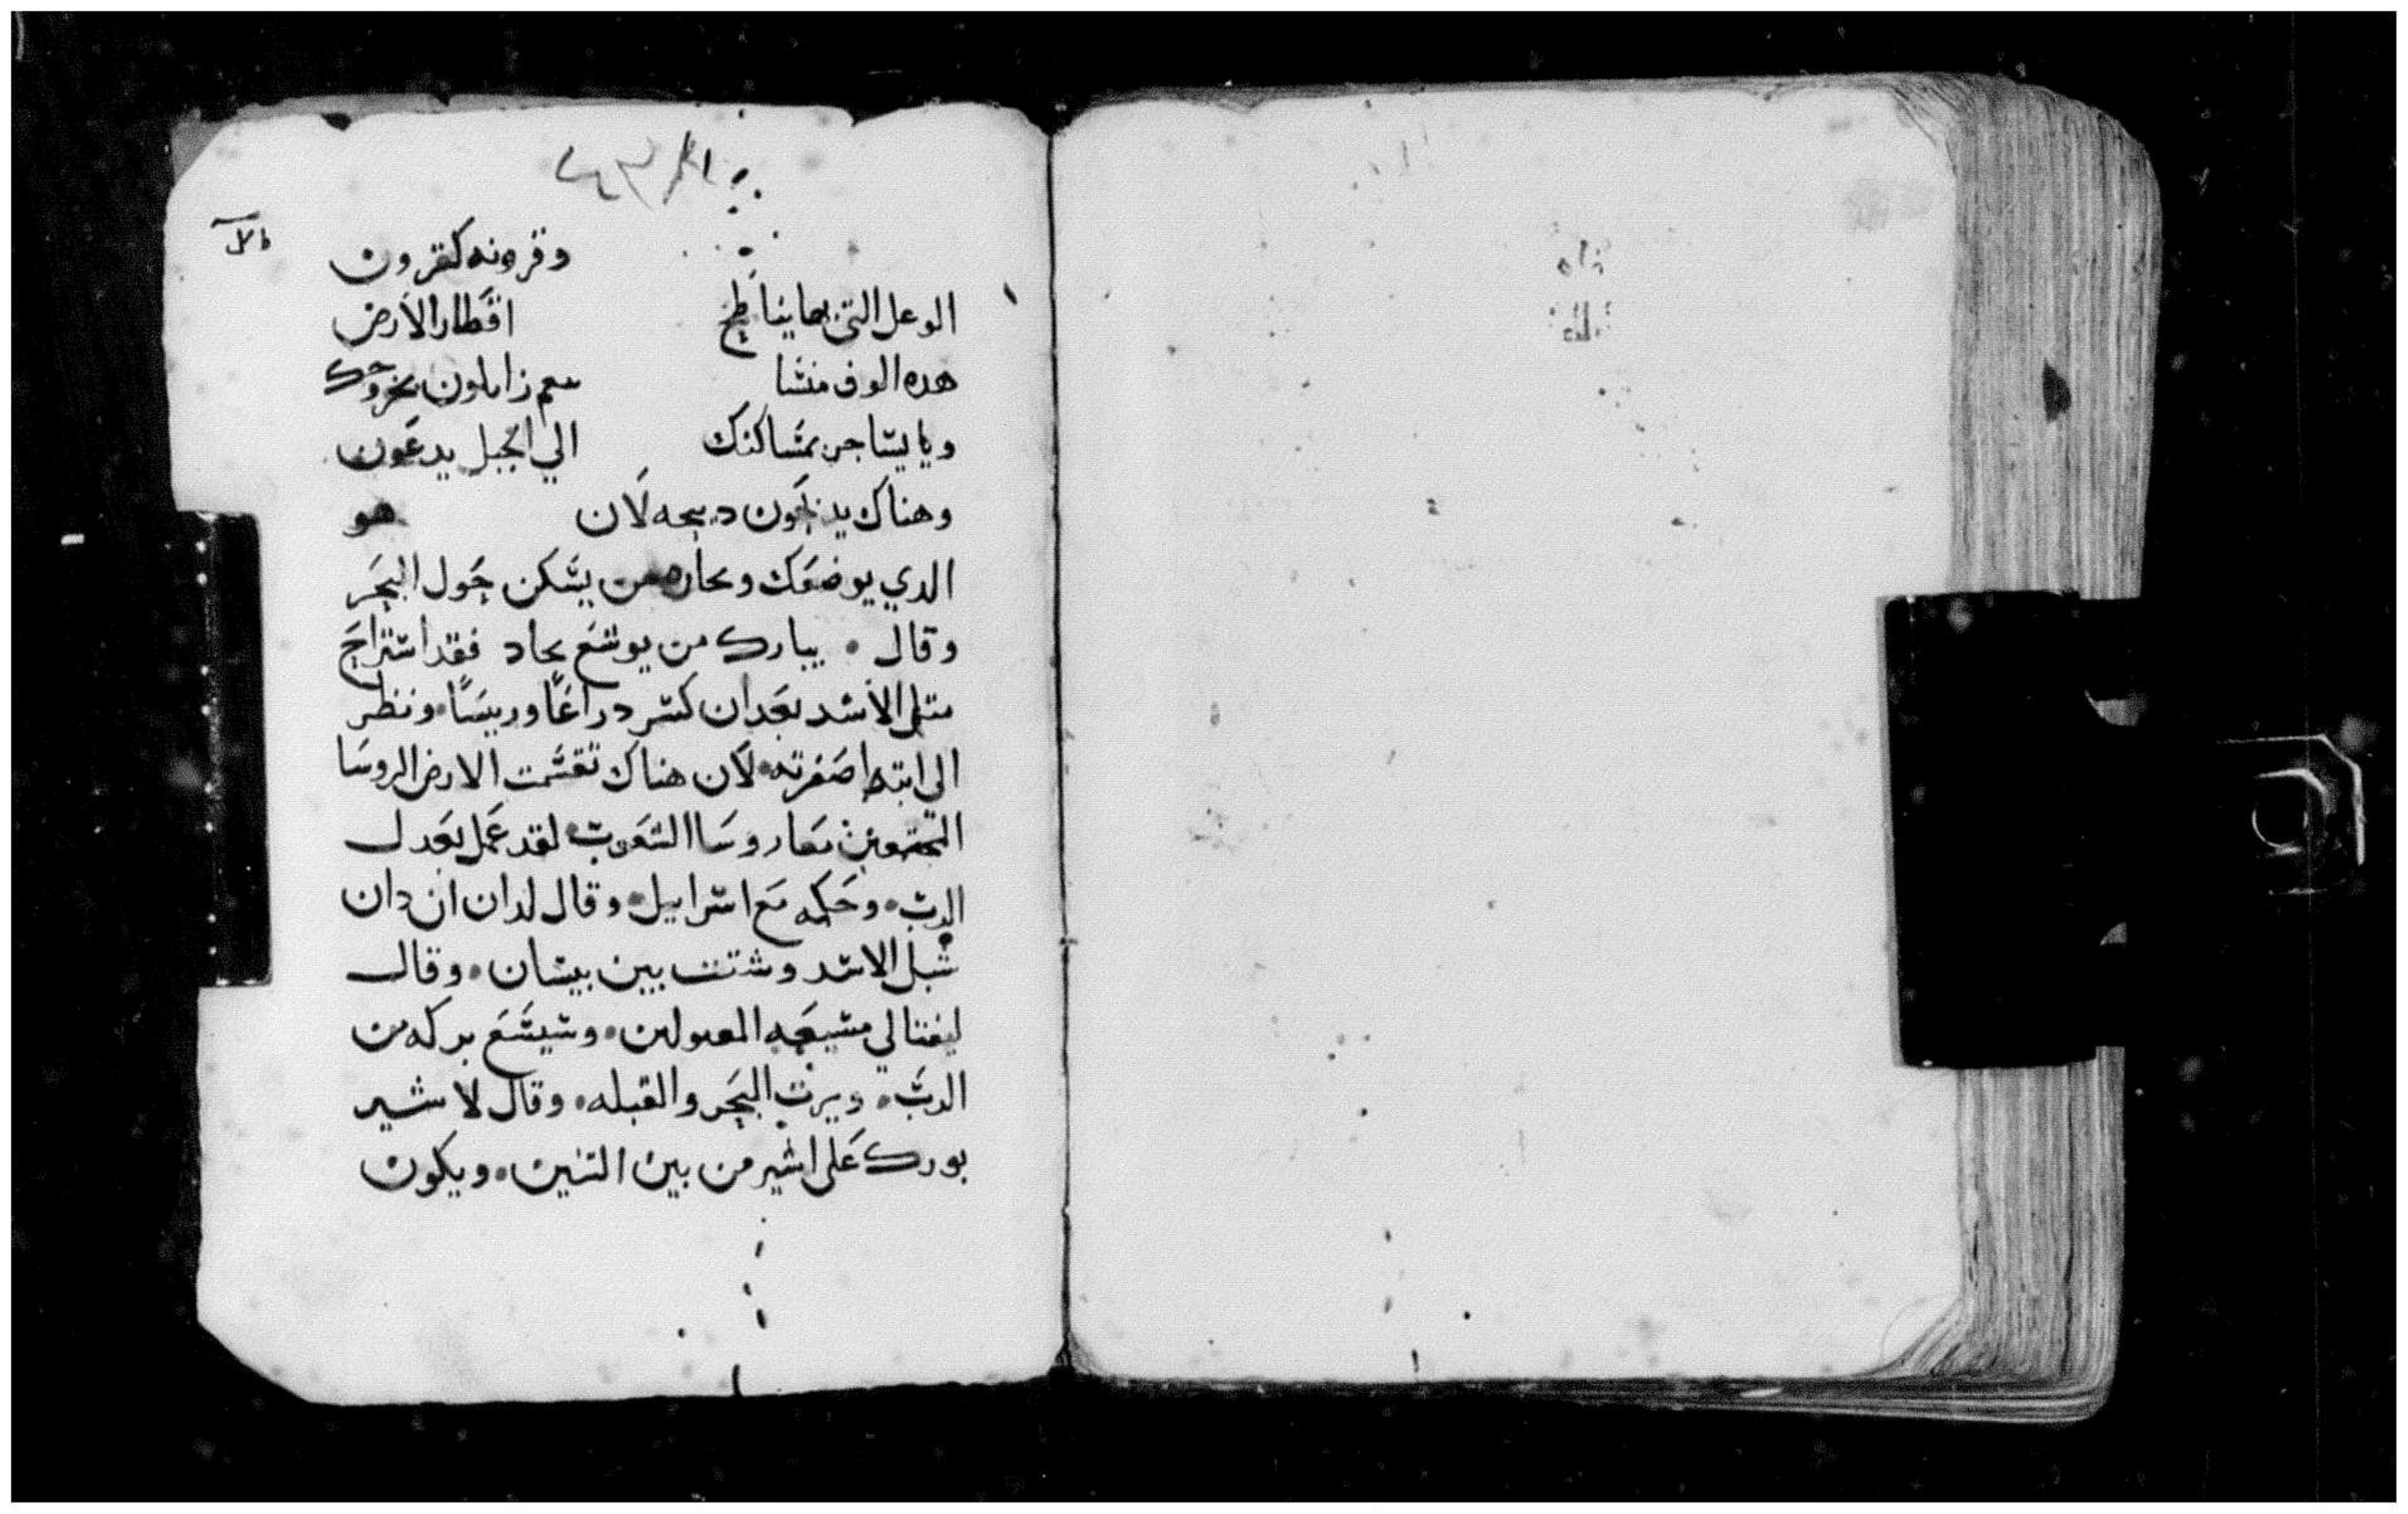 وقرونه كقرون
الوعل التى بها يناطح اقطار الارض
هده الوف منشا زابلون بخروجك
ويا يساجر بمساكنك الي الجبل يدعون
وهناك يدبحون دبيحه لان هو
الدي يوضعك من يسكن حول البحر
وقال • يبارك من يوسع بجاد فقد استراح
متل الاسد بعد ان كسر دراعًا وريسًا • ونظر
الى ابتدا صفرته • لان هناك تقسمت الارض الروسا
المجتمعين معا روسا الشعوب • لقد عمل بعدل
الرب • وحكم مع اسراييل • وقال لدان ان دان
شبل الاسد وشتت بين بيسان • وقال
ليفتالي مشبعه المقبولين • وسيشبع بركه من
الرب • ويرت البحر والقبله • وقال لاشير
بورك على اشير من بين البنين • ويكون